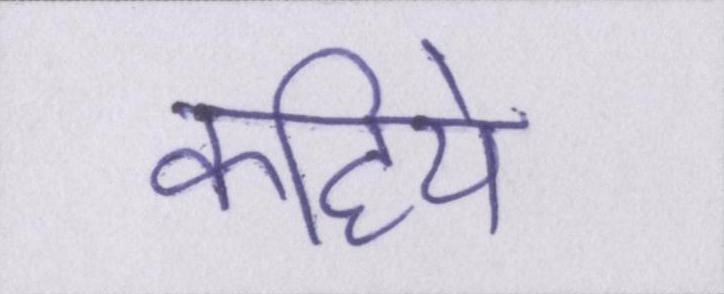 कहिये